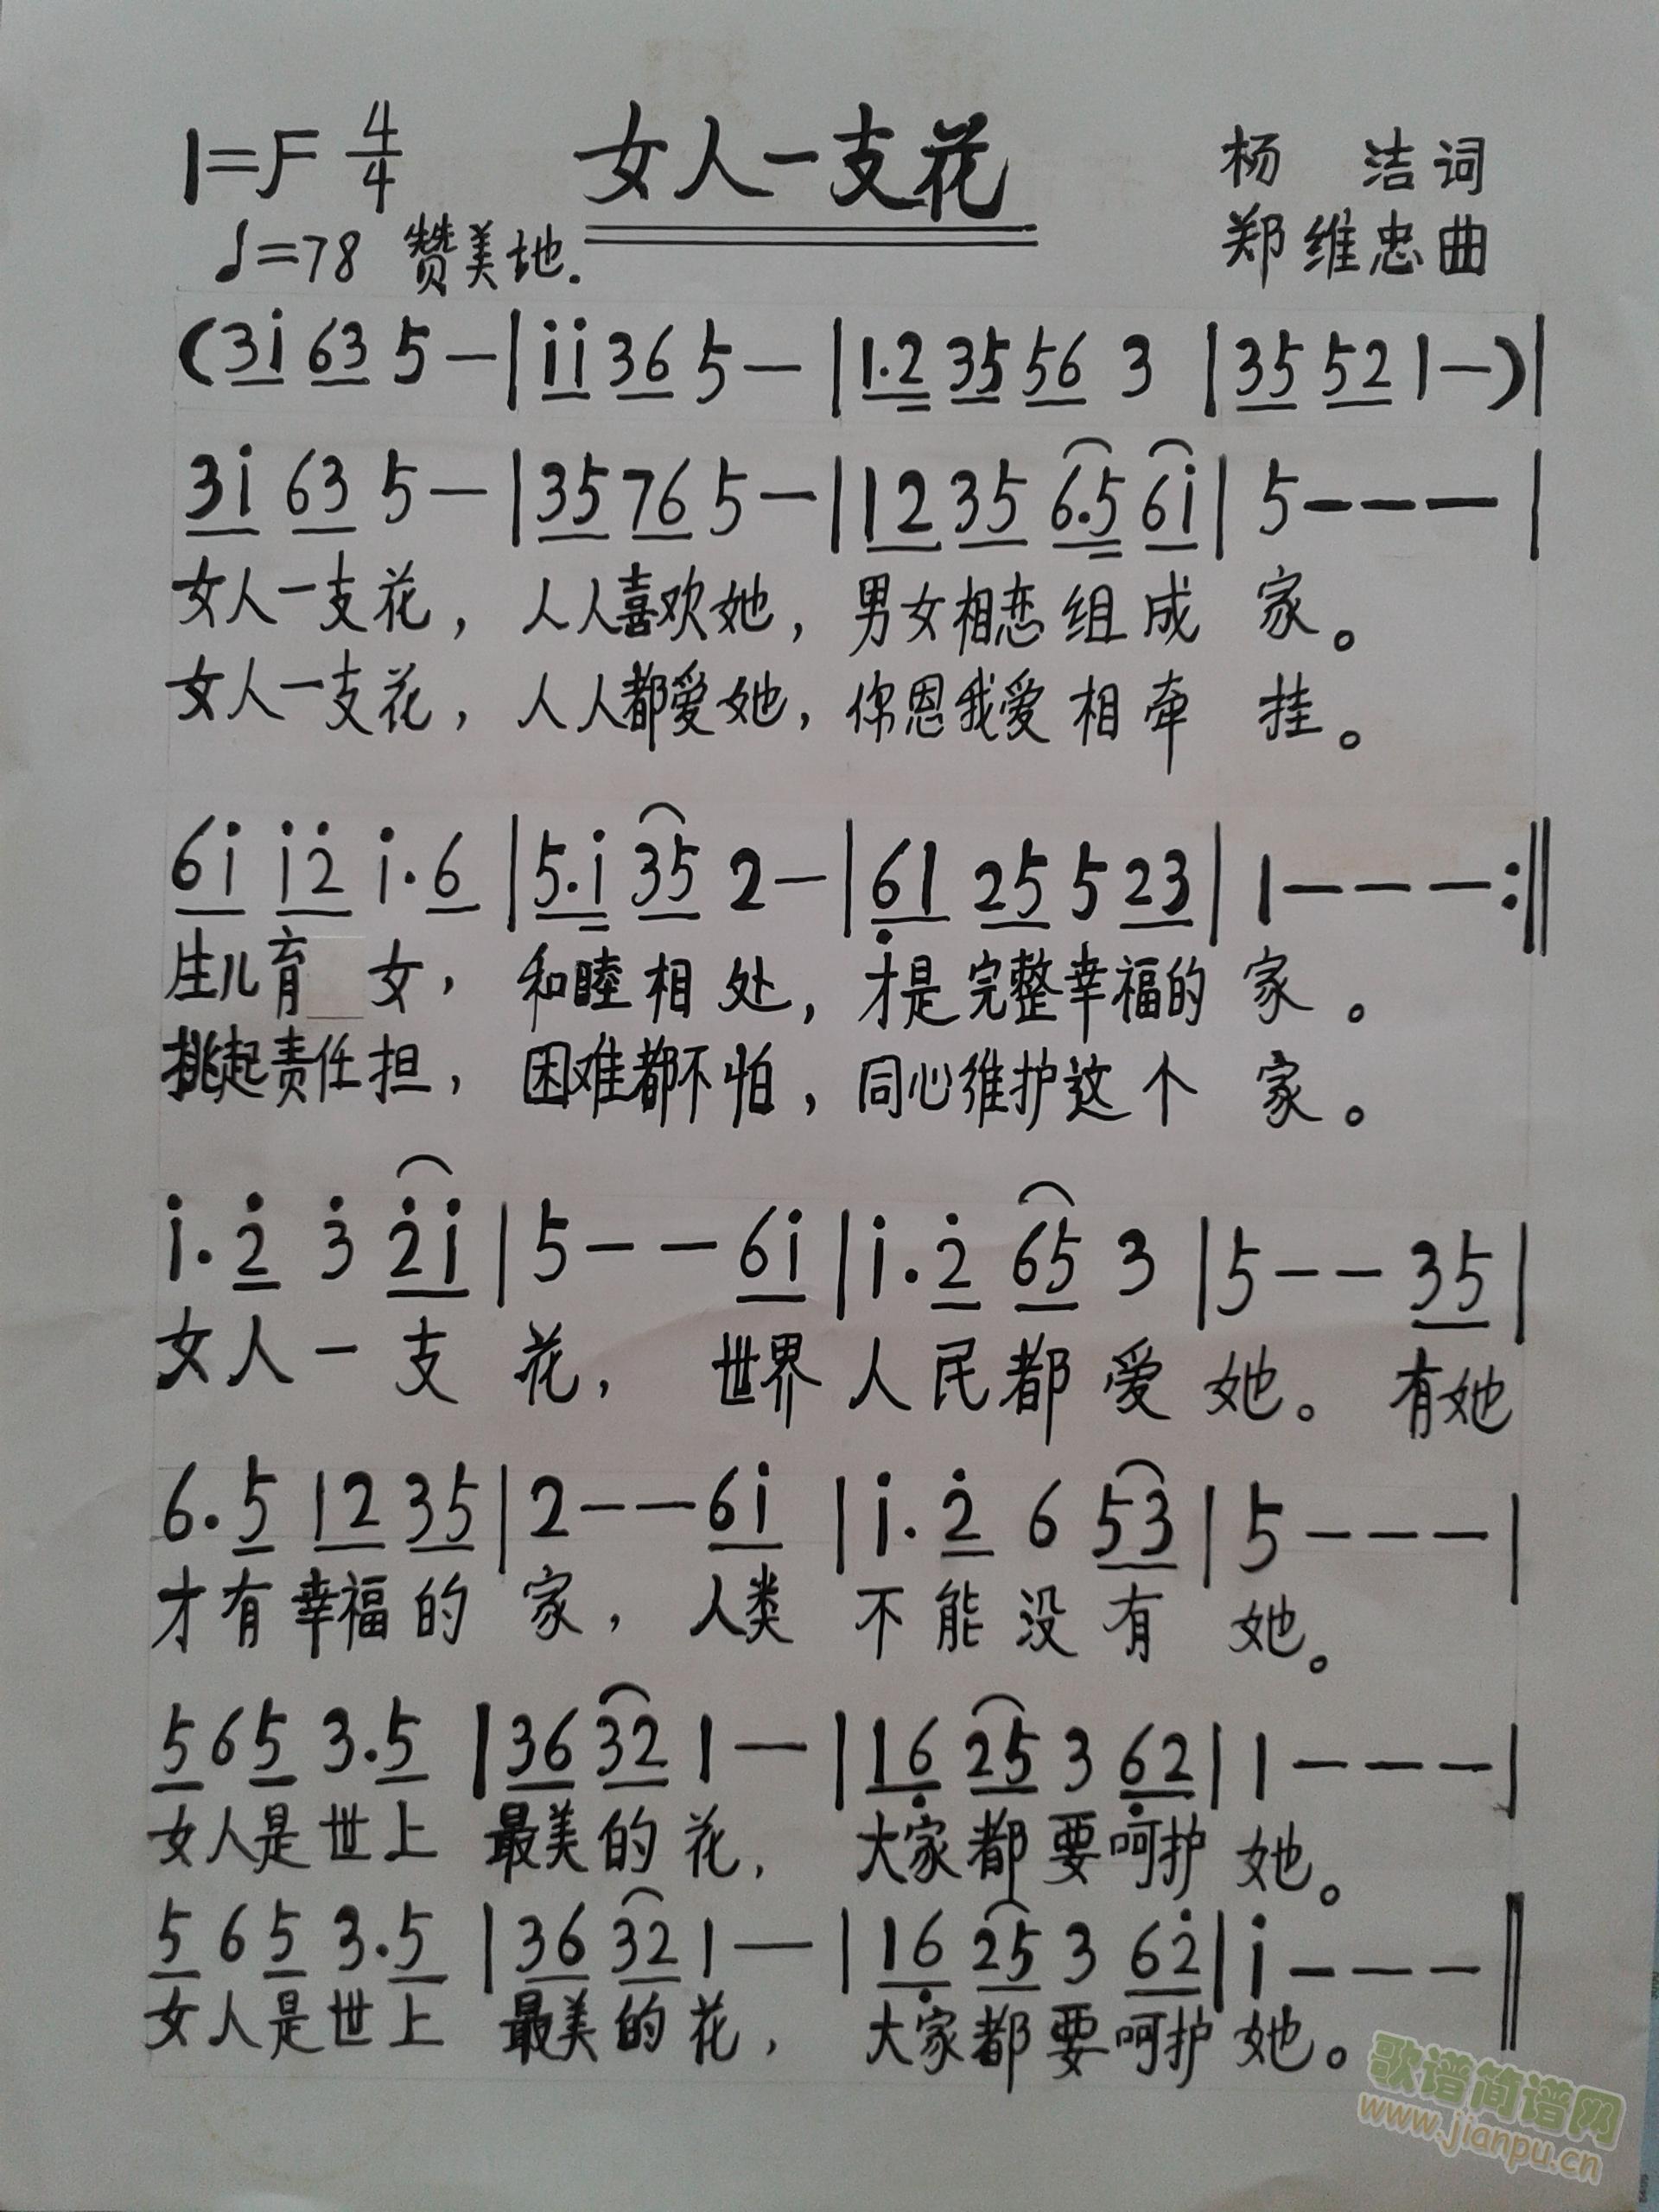 1=F 4/4 女人一支花 杨 洁词
♩=78 赞美地. 郑维忠曲
(3i̇ 63 5 — | i̇i̇ 36 5 — | 1.2 35 56 3 | 35 52 1 —) |
3i̇ 63 5 — | 35 76 5 — | 12 35 6.5 6i̇ | 5 — — — |
女人一支花，人人喜欢她，男女相恋组成 家。
女人一支花，人人都爱她，你恩我爱相牵 挂。
6i̇ i̇2̇ i̇.6 | 5.i̇ 35 2 — | 6̣1 25 5 23 | 1 — — — :‖
生儿育 女，和睦相处，才是完整幸福的 家。
挑起责任担，困难都不怕，同心维护这个 家。
i̇.2̇ 3̇ 2̇i̇ | 5 — — 6i̇ | i̇.2̇ 65 3 | 5 — — 35 |
女人一支 花， 世界 人民都爱 她。有她
6.5 12 35 | 2 — — 6i̇ | i̇.2̇ 6 53 | 5 — — — |
才有幸福的 家， 人类 不能没有 她。
5 6 5 3.5 | 36 32 1 — | 16̣ 25 3 6̣2 | 1 — — — |
女人是世上 最美的花， 大家都要呵护 她。
5 6 5 3.5 | 36 32 1 — | 16̣ 25 3 62̇ | i̇ — — — ‖
女人是世上 最美的花， 大家都要呵护 她。
歌谱简谱网
www.jianpu.cn